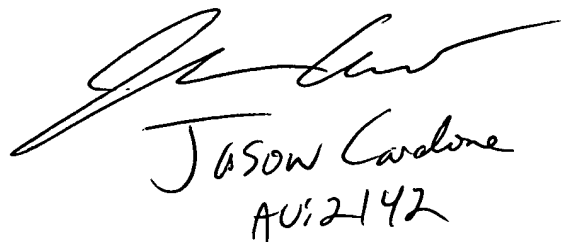 Jason Cardone
AU:2142